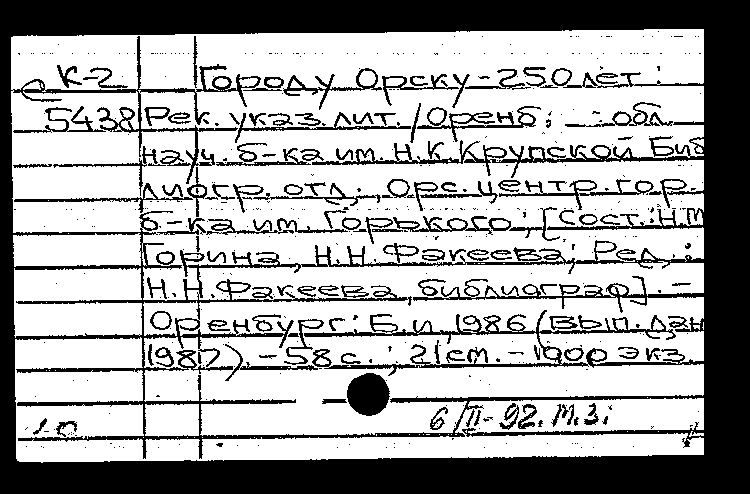 К-2 Городу Орску-250 лет:
5438 Рек. указ. лит. /Оренб. обл.
науч. б-ка им. Н.К.Крупской Биб
лиогр. отл.; Орс. центр. гор.
б-ка им. Горького; [Сост.: Н.М
Горина, Н.Н.Факеева; Ред.:
Н.Н.Факеева, библиограф]. -
Оренбург: Б.и, 1986 (вып. дан
1987). - 58 с.; 21 см. - 1000 экз.
6/II-92. М.З;
1.0